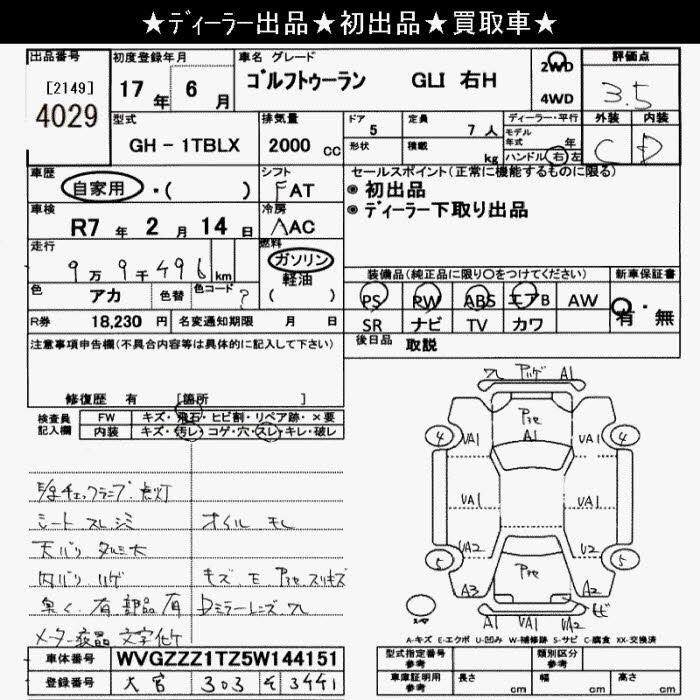 ★ディーラー出品★初出品★買取車★
出品番号
[2149]
4029
初度登録年月
17 年 6 月
車名 グレード
ゴルフトゥーラン GLI 右H
2WD
4WD
評価点
3.5
外装 内装
C D
型式
GH - 1TBLX
排気量
2000 cc
ドア
5
形状
定員
7 人
積載
kg
ディーラー・平行
モデル年式 年
ハンドル 右 左
車歴
自家用 ・( )
シフト
FAT
セールスポイント(正常に機能するものに限る)
◉ 初出品
◉ ディーラー下取り出品
車検
R7 年 2 月 14 日
冷房
AAC
走行
9万9千496 km
燃料
ガソリン
軽油
( )
色 アカ 色替 色コード ?
装備品(純正品に限り○をつけてください)
PS PW ABS エアB AW
SR ナビ TV カワ
新車保証書
有・無
R券 18,230 円 名変通知期限 月 日
後日品 取説
注意事項申告欄(不具合内容等は具体的に記入して下さい)
修復歴 有 [箇所 ]
検査員記入欄
FW キズ・飛石・ヒビ割・リペア跡・×要
内装 キズ・汚レ・コゲ・穴・スレ・キレ・破レ
チェックランプ 点灯
シート スレ シミ オイル モレ
天バリ タルミ大
内バリ ハゲ
臭く 有 部品 有 Dミラーレンズ ワレ
メーター液晶 文字化ケ
ワレ A1
A1
4 VA1 VA1 4
VA1 VA1
VA2 V2
5 5
A3 A2
A1 VA1 VA2
A-キズ E-エクボ U-凹み W-補修跡 S-サビ C-腐食 XX-交換済
車体番号 WVGZZZ1TZ5W144151
登録番号 大宮 303 そ 3441
型式指定番号 参考
類別区分 参考
車庫証明用 参考
長さ cm 幅 cm 高さ cm